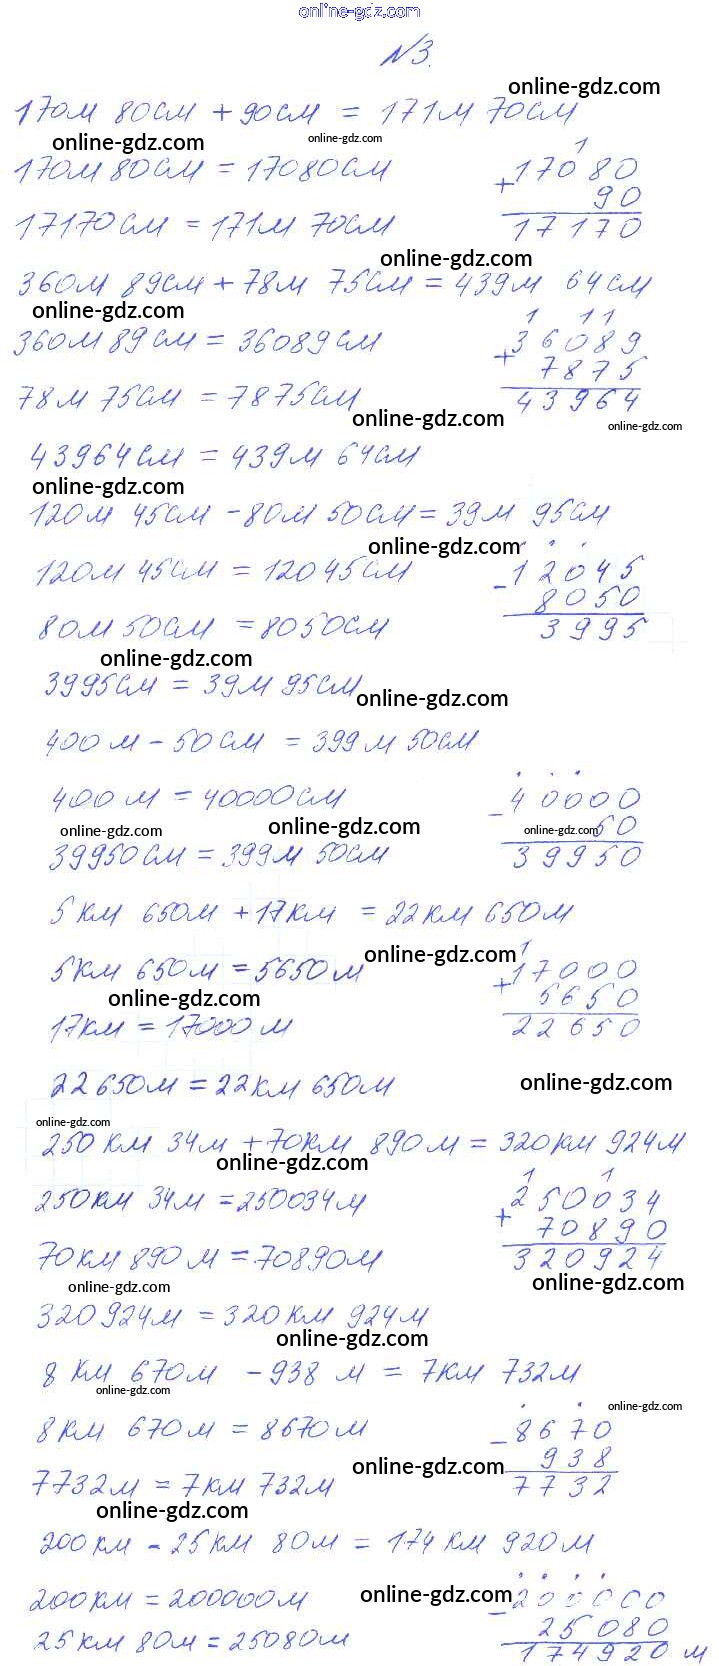 online-gdz.com
№3.
online-gdz.com
170м 80см + 90см = 171м 70см
online-gdz.com
online-gdz.com
170м 80см = 17080см
1
+ 17080
90
17170
17170см = 171м 70см
online-gdz.com
360м 89см + 78м 75см = 439м 64см
online-gdz.com
360м 89см = 36089см
1 11
+ 36089
7875
43964
78м 75см = 7875см
online-gdz.com
online-gdz.com
43964см = 439м 64см
online-gdz.com
120м 45см - 80м 50см = 39м 95см
online-gdz.com
120м 45см = 12045см
- 12045
8050
3995
80м 50см = 8050см
online-gdz.com
3995см = 39м 95см
online-gdz.com
400м - 50см = 399м 50см
400м = 40000см
- 40000
50
39950
online-gdz.com
online-gdz.com
online-gdz.com
39950см = 399м 50см
5км 650м + 17км = 22км 650м
online-gdz.com
5км 650м = 5650м
1
+ 17000
5650
22650
online-gdz.com
17км = 17000м
22650м = 22км 650м
online-gdz.com
online-gdz.com
250км 34м + 70км 890м = 320км 924м
online-gdz.com
250км 34м = 250034м
1 1
+ 250034
70890
320924
70км 890м = 70890м
online-gdz.com
online-gdz.com
320924м = 320км 924м
online-gdz.com
8км 670м - 938м = 7км 732м
online-gdz.com
online-gdz.com
8км 670м = 8670м
- 8670
938
7732
online-gdz.com
7732м = 7км 732м
online-gdz.com
200км - 25км 80м = 174км 920м
online-gdz.com
200км = 200000м
- 200000
25080
174920м
25км 80м = 25080м